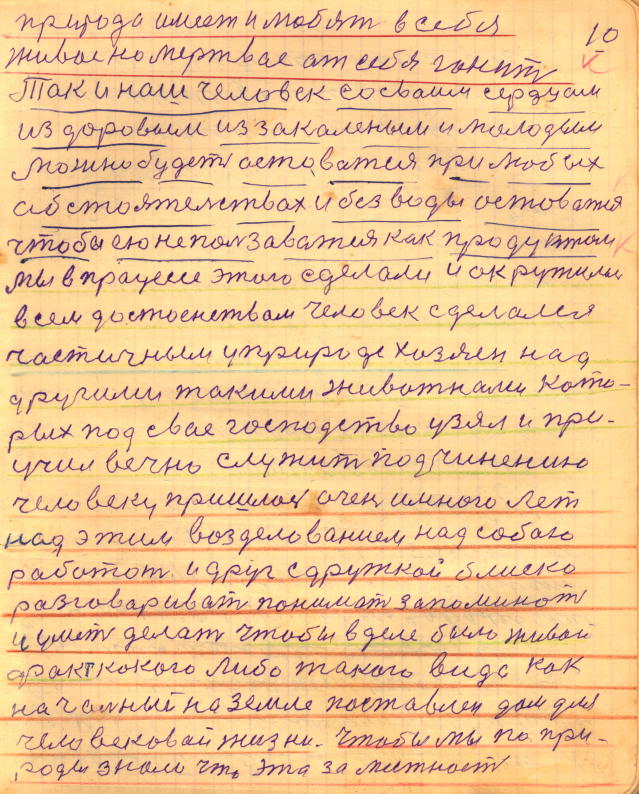 природа имеет и любят в себя
10
живое но мертвае от себя гонит
Так и наш человек со сваим сердцам
из доровым из закаленым и молодым
можно будет оставатся при любых
абстоятелствах и без воды оставатся
чтобы ею не ползаватся как продуктом
мы в працесе этого сделали и окружили
всем достоенствам человек сделался
частичным у природе хозяен над
другими такими животнами, кото-
рых под свае господство узял и при-
учил вечно служит подчинению
человеку, пришлос очен много лет
над этим возделованием над собаю
работат. и друг с дружкой блиско
разговариват понимат запоминат
и умет делат чтобы в деле было живой
факт какого либо такого вида как
началный на земле поставлен дом для
человековай жизни. Чтобы мы по при-
роды знали что эта за местност